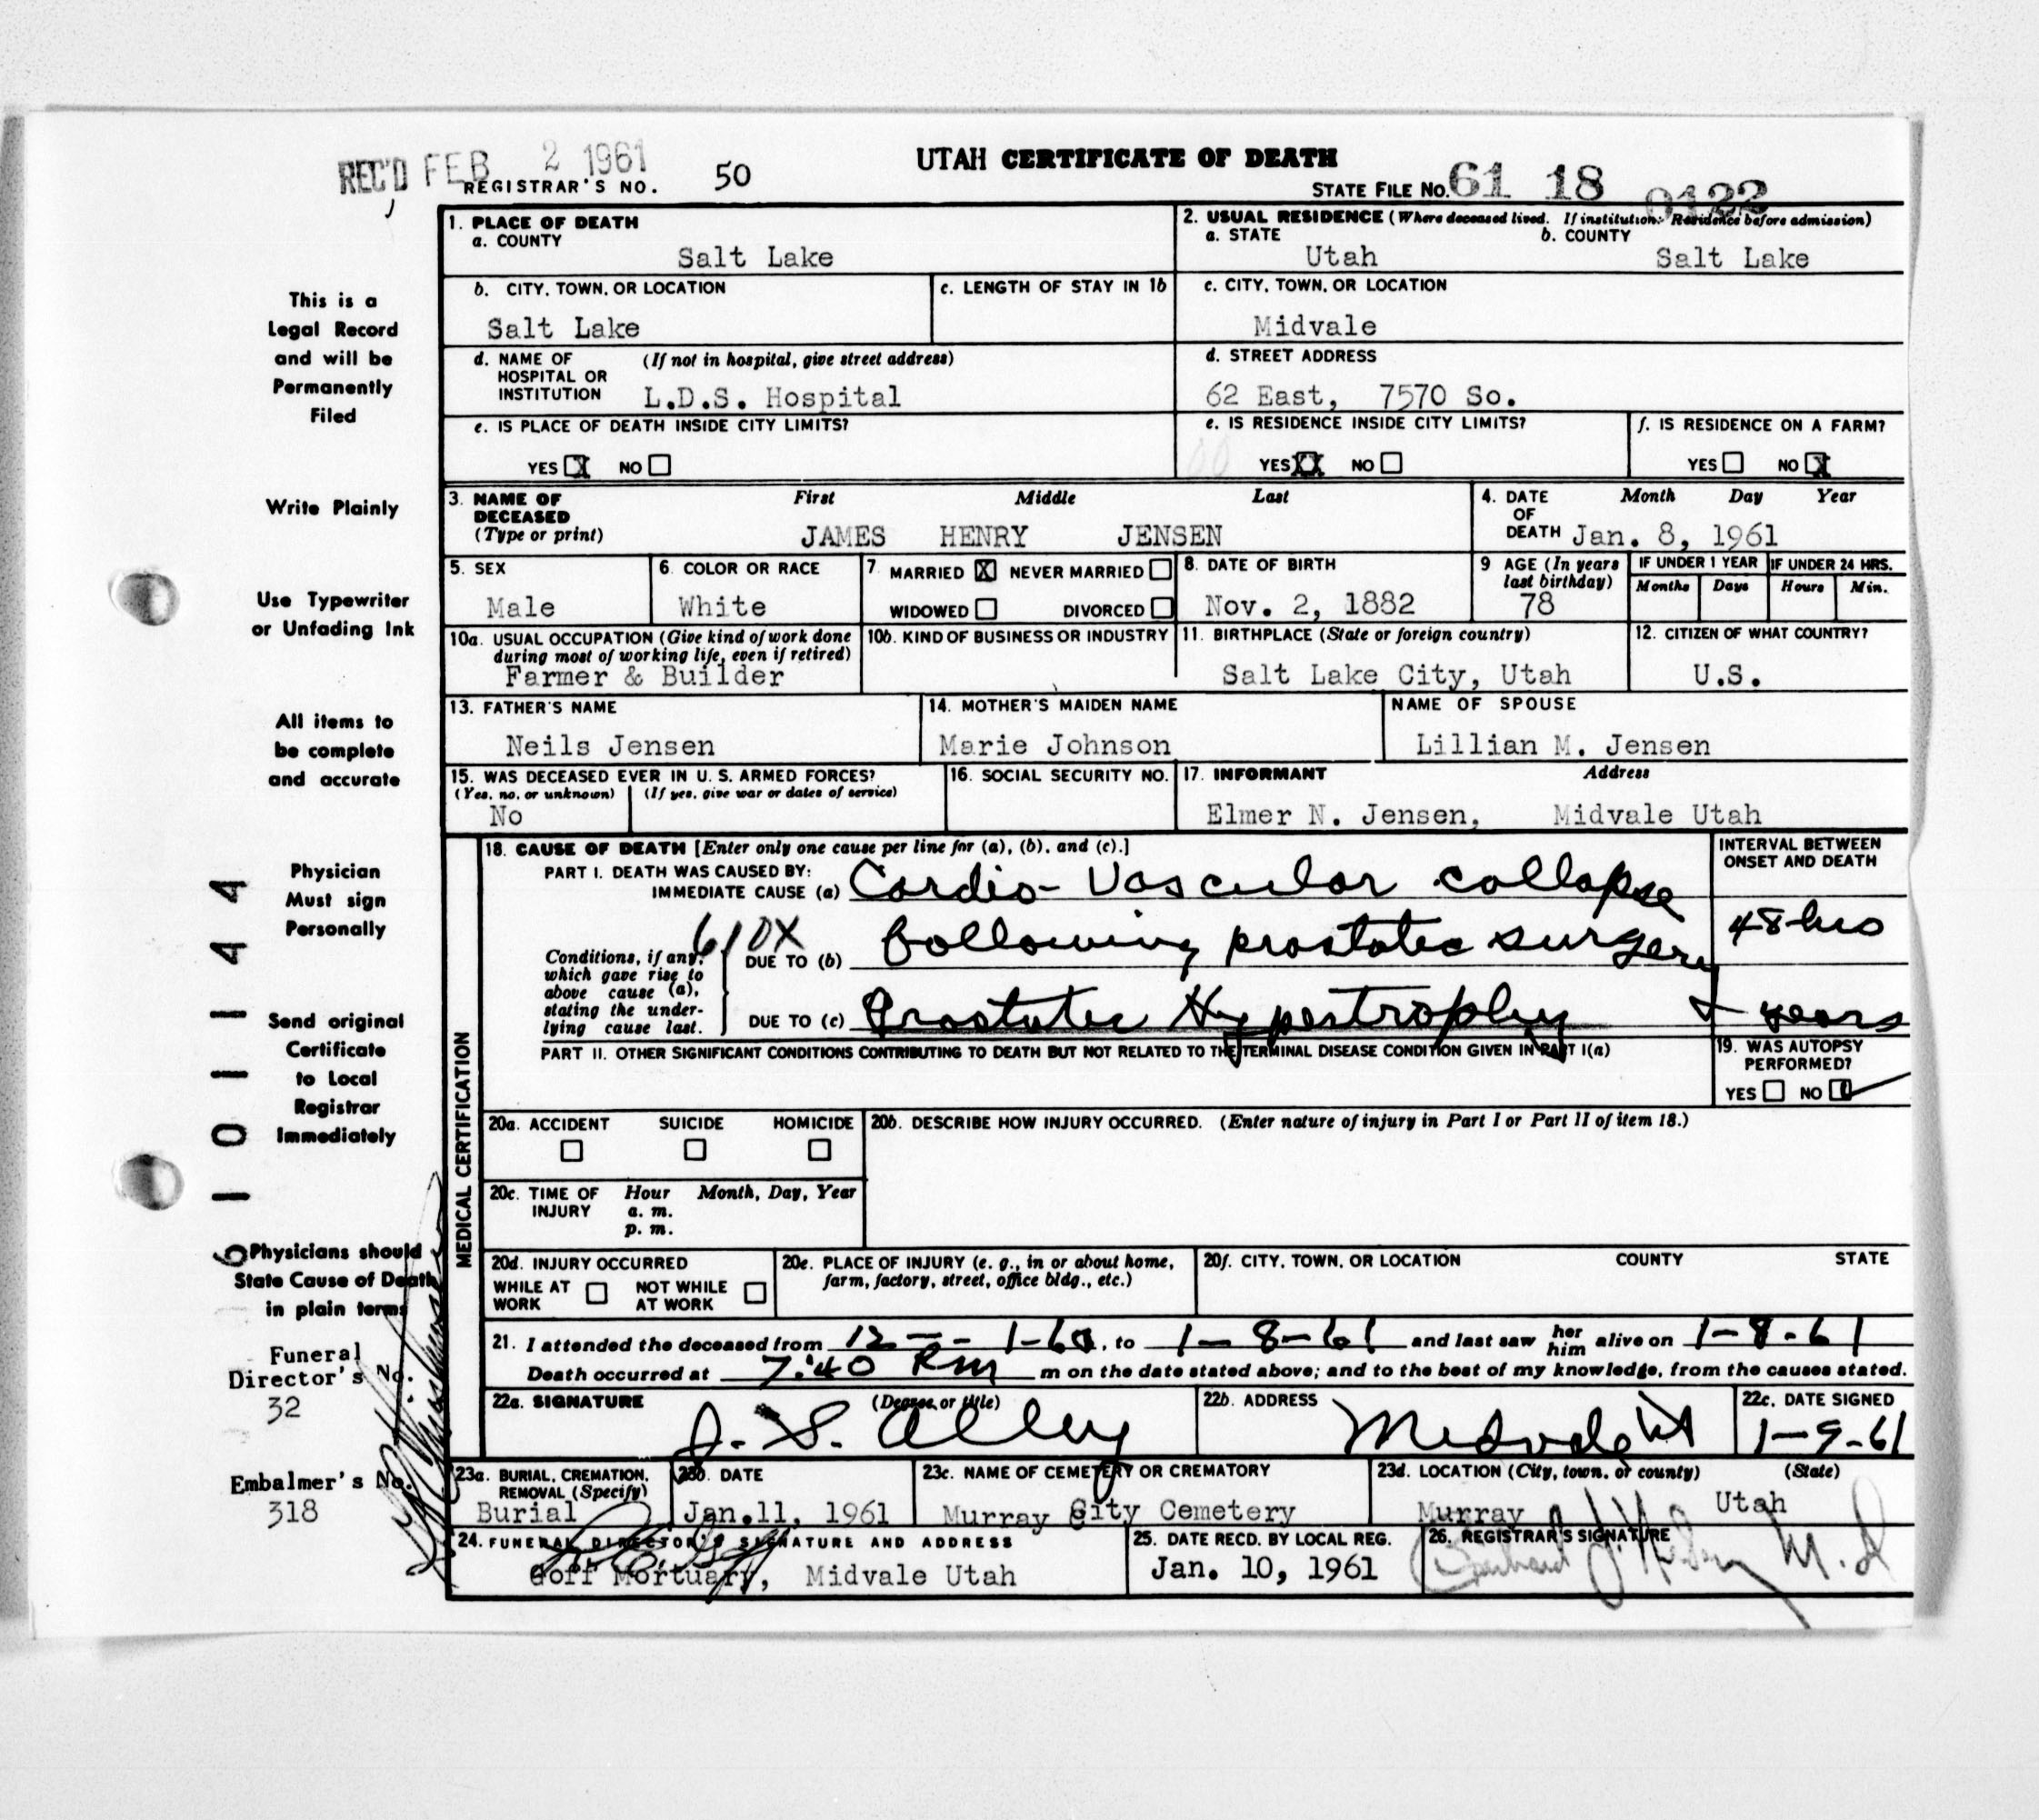 REC'D FEB 2 1961
UTAH CERTIFICATE OF DEATH
REGISTRAR'S NO. 50
STATE FILE NO. 61 18 0122
1. PLACE OF DEATH
a. COUNTY
Salt Lake
2. USUAL RESIDENCE (Where deceased lived. If institution: Residence before admission)
a. STATE b. COUNTY
Utah Salt Lake
b. CITY, TOWN, OR LOCATION
Salt Lake
c. LENGTH OF STAY IN 1b
c. CITY, TOWN, OR LOCATION
Midvale
d. NAME OF HOSPITAL OR INSTITUTION (If not in hospital, give street address)
L.D.S. Hospital
d. STREET ADDRESS
62 East, 7570 So.
e. IS PLACE OF DEATH INSIDE CITY LIMITS?
YES X NO
e. IS RESIDENCE INSIDE CITY LIMITS?
YES XX NO
f. IS RESIDENCE ON A FARM?
YES NO X
3. NAME OF DECEASED (Type or print)
First Middle Last
JAMES HENRY JENSEN
4. DATE OF DEATH Month Day Year
Jan. 8, 1961
5. SEX
Male
6. COLOR OR RACE
White
7. MARRIED X NEVER MARRIED
WIDOWED DIVORCED
8. DATE OF BIRTH
Nov. 2, 1882
9 AGE (In years last birthday)
78
IF UNDER 1 YEAR
Months Days
IF UNDER 24 HRS.
Hours Min.
10a. USUAL OCCUPATION (Give kind of work done during most of working life, even if retired)
Farmer & Builder
10b. KIND OF BUSINESS OR INDUSTRY
11. BIRTHPLACE (State or foreign country)
Salt Lake City, Utah
12. CITIZEN OF WHAT COUNTRY?
U.S.
13. FATHER'S NAME
Neils Jensen
14. MOTHER'S MAIDEN NAME
Marie Johnson
NAME OF SPOUSE
Lillian M. Jensen
15. WAS DECEASED EVER IN U. S. ARMED FORCES?
(Yes, no, or unknown) (If yes, give war or dates of service)
No
16. SOCIAL SECURITY NO.
17. INFORMANT Address
Elmer N. Jensen, Midvale Utah
MEDICAL CERTIFICATION
18. CAUSE OF DEATH [Enter only one cause per line for (a), (b), and (c).]
INTERVAL BETWEEN ONSET AND DEATH
PART I. DEATH WAS CAUSED BY:
IMMEDIATE CAUSE (a) Cardio-Vascular collapse
610X
Conditions, if any, which gave rise to above cause (a), stating the underlying cause last.
DUE TO (b) following prostatic surgery 48 hrs
DUE TO (c) Prostatic Hypertrophy years
PART II. OTHER SIGNIFICANT CONDITIONS CONTRIBUTING TO DEATH BUT NOT RELATED TO THE TERMINAL DISEASE CONDITION GIVEN IN PART I(a)
19. WAS AUTOPSY PERFORMED?
YES NO
20a. ACCIDENT SUICIDE HOMICIDE
20b. DESCRIBE HOW INJURY OCCURRED. (Enter nature of injury in Part I or Part II of item 18.)
20c. TIME OF INJURY Hour Month, Day, Year
a. m.
p. m.
20d. INJURY OCCURRED
WHILE AT WORK NOT WHILE AT WORK
20e. PLACE OF INJURY (e. g., in or about home, farm, factory, street, office bldg., etc.)
20f. CITY, TOWN, OR LOCATION COUNTY STATE
21. I attended the deceased from 12 - - 1-60, to 1-8-61 and last saw her him alive on 1-8-61
Death occurred at 7:40 Pm m on the date stated above; and to the best of my knowledge, from the causes stated.
22a. SIGNATURE (Degree or title)
J. S. Alley
22b. ADDRESS
Midvale Ut
22c. DATE SIGNED
1-9-61
23a. BURIAL, CREMATION, REMOVAL (Specify)
Burial
23b. DATE
Jan.11, 1961
23c. NAME OF CEMETERY OR CREMATORY
Murray City Cemetery
23d. LOCATION (City, town, or county) (State)
Murray Utah
24. FUNERAL DIRECTOR'S SIGNATURE AND ADDRESS
Goff Mortuary, Midvale Utah
25. DATE RECD. BY LOCAL REG.
Jan. 10, 1961
26. REGISTRAR'S SIGNATURE
M.D
This is a
Legal Record
and will be
Permanently
Filed
Write Plainly
Use Typewriter
or Unfading Ink
All items to
be complete
and accurate
Physician
Must sign
Personally
Send original
Certificate
to Local
Registrar
Immediately
Physicians should
State Cause of Death
in plain terms
Funeral
Director's No.
32
Embalmer's No.
318
61011444